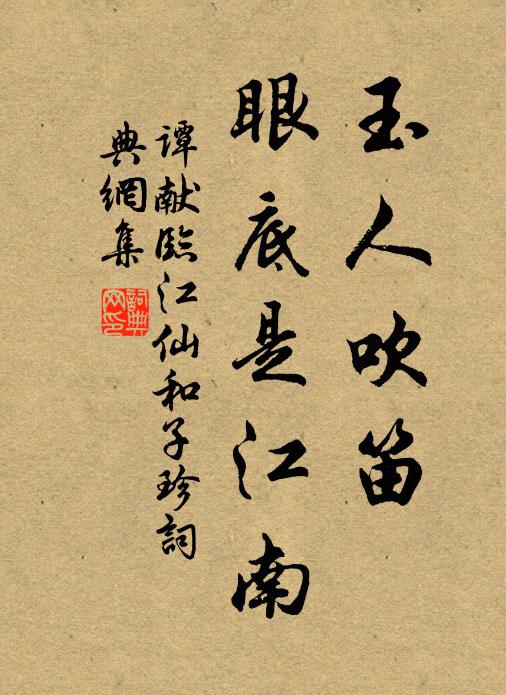 玉人吹笛
眼底是江南
谭献臨江仙和子珍詞
典網集
詞典網印